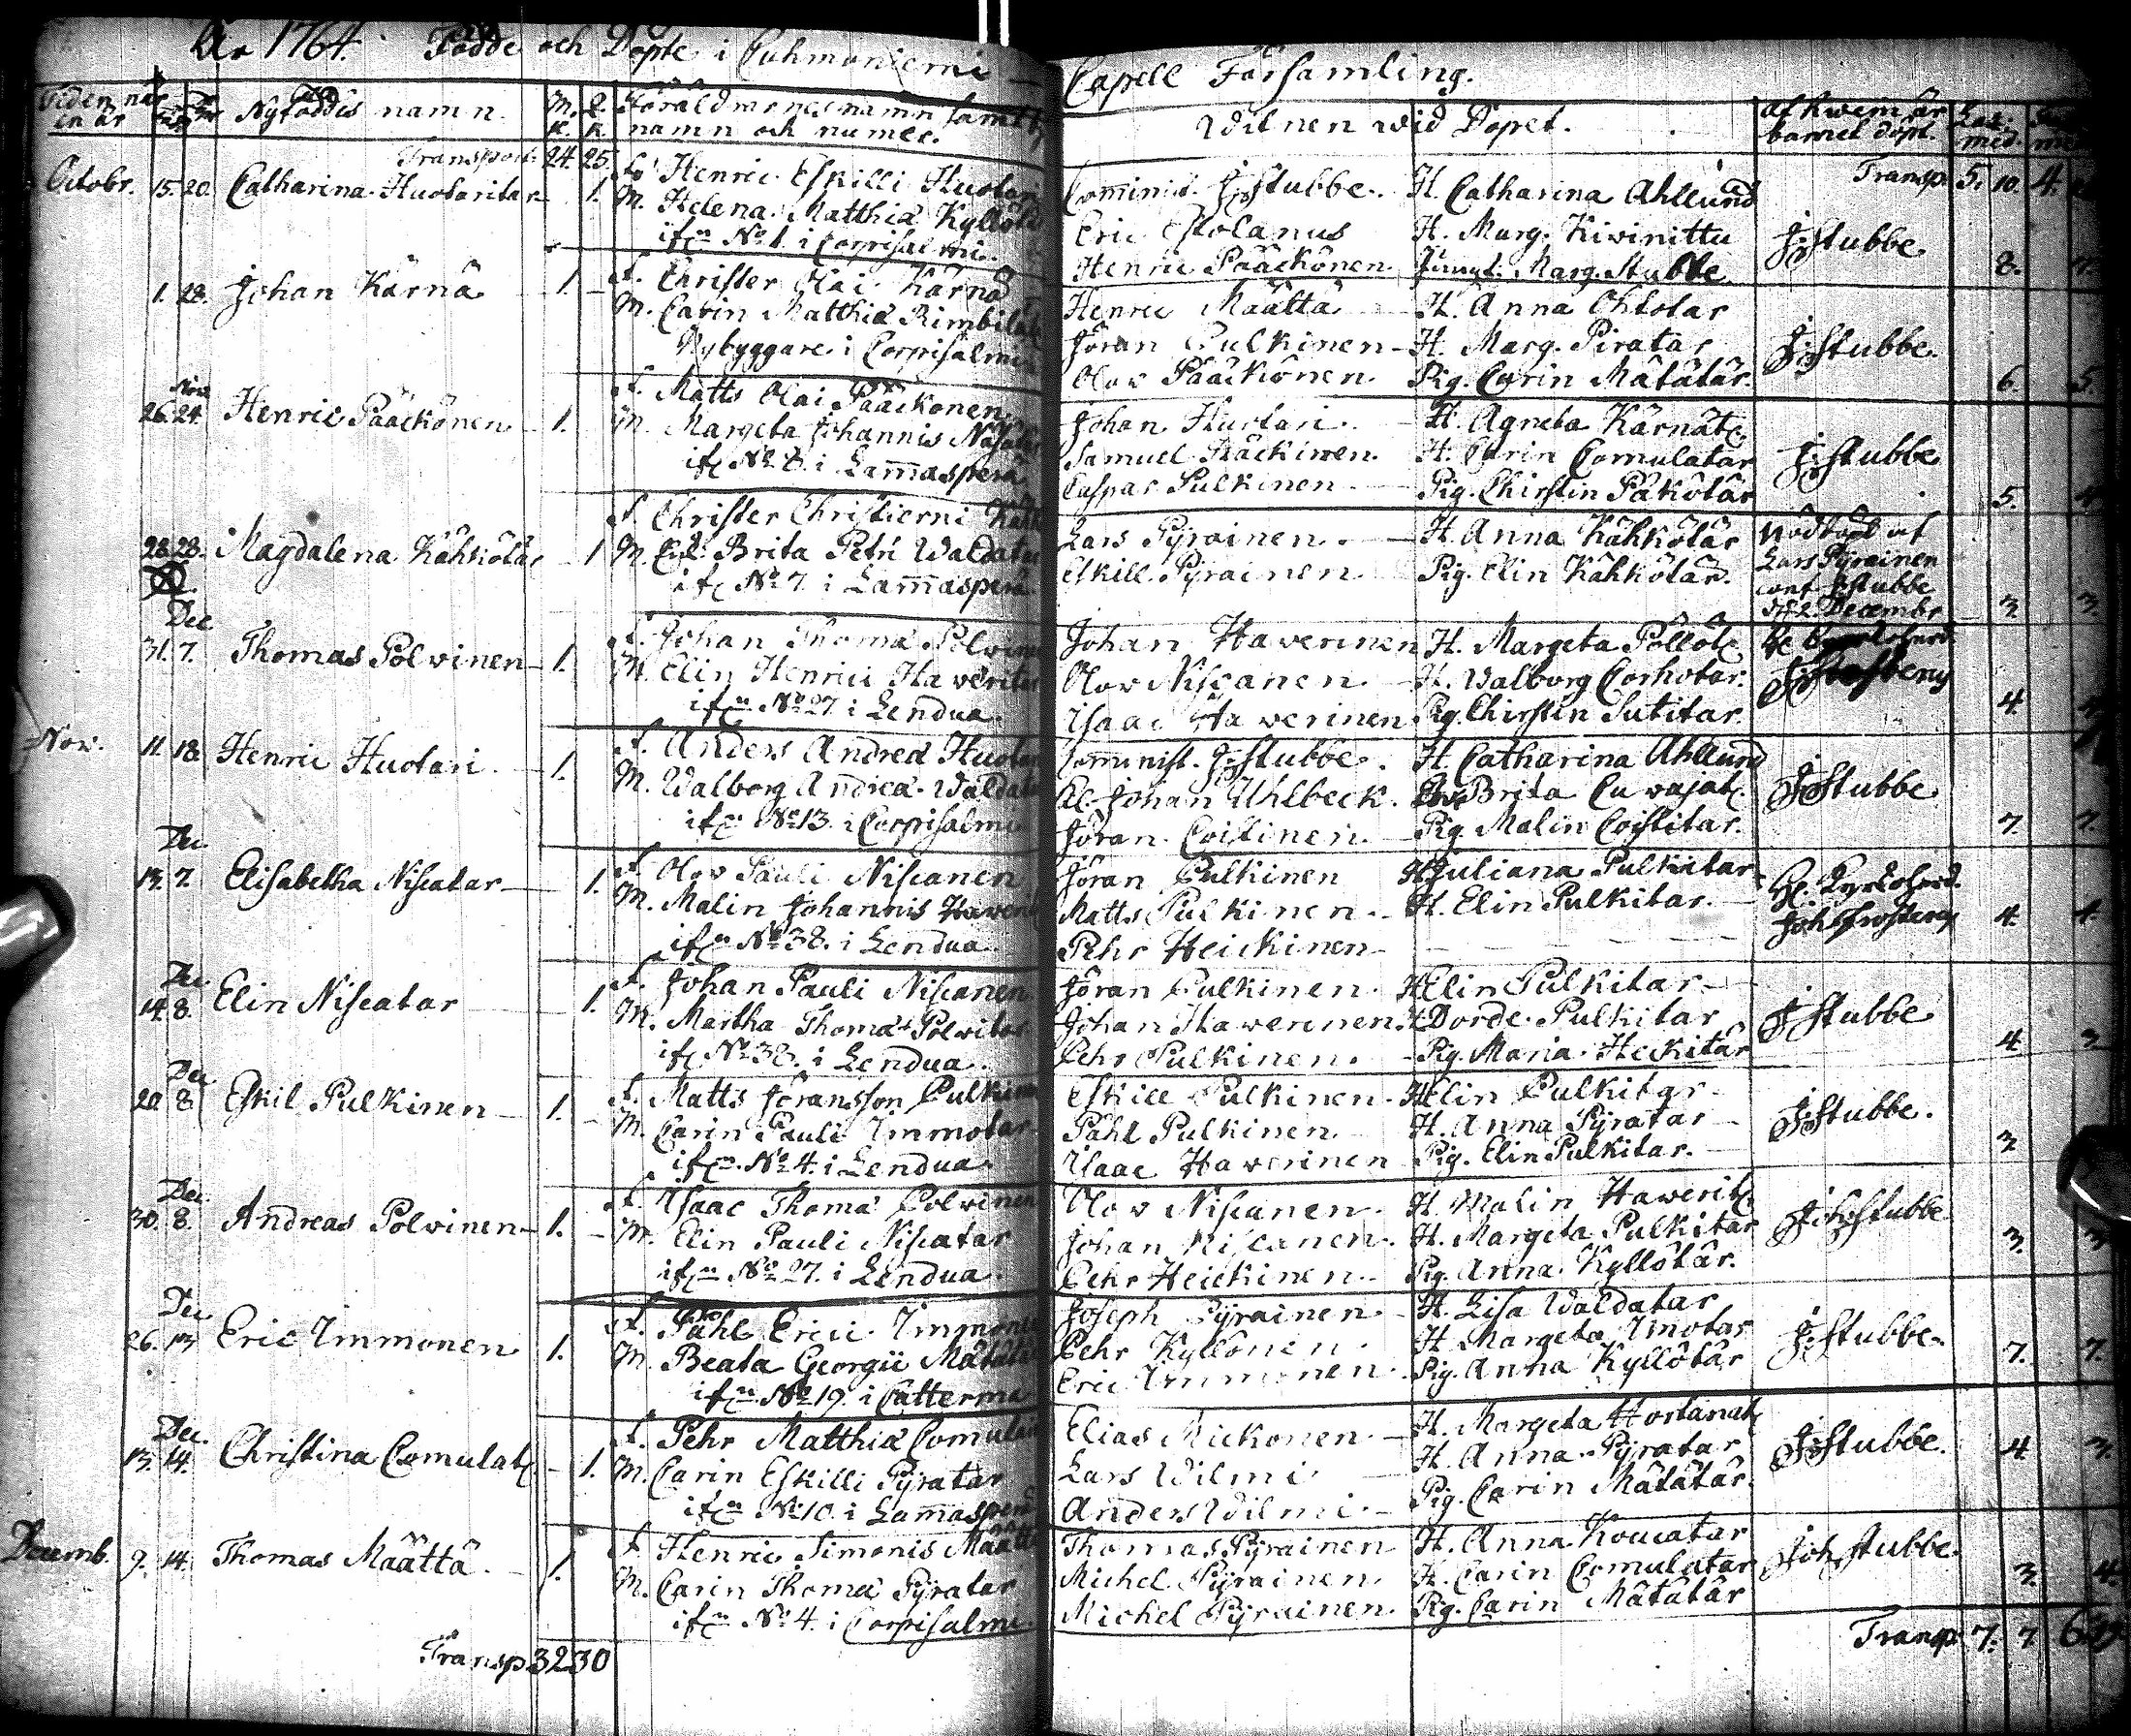 År 1764. Födde och Döpte i Cuhmoniemi Capell Församling.
Tiden när
en är Nyföddes namn. M. Q. Föräldrarnes namn samt
K. K. namn och numer. Witnen wid Dopet. af hwem är
barnet döpt.
Transport. 24. 25. Transp. 5. 10. 4.
Octobr. 15. 20. Catharina Huotaritar 1. F. Henric Eskilli Huotari Comminist. J. Stubbe. H. Catharina Ahllund
M. Helena Matthiæ Kyllöt Eric Estolanus H. Marg. Kivinittu J. Stubbe.
ifrn No 1. i Corpisalmi. Henric Pääckönen Jungf. Marg. Stubbe. 8.
1. 28. Johan Kärnä 1. F. Christer Olai Kärnä Henric Määttä H. Anna Ohtolar
M. Carin Matthiæ Rimbilät Jöran Pulkinen H. Marg. Piratar J. Stubbe.
Nybyggare i Corpisalmi Olov Pääckönen Pig. Carin Mätätär 6. 5.
Nov.
26. 24. Henric Pääckönen 1. F. Matts Olai Pääckonen Johan Huotari H. Agneta Kärnät
M. Margeta Johannis Samuel Räckinen. H. Carin Comulatar J. Stubbe
if No 8. i Lam̄asperä Caspar Pulkinen Pig. Chirstin Päkötär 5.
28. 28. Magdalena Kähkötär 1 F. Christer Christierni Lars Pyrainen H. Anna Kähkötär Nöddöpt af
M. Brita Petri Waldatar Eskill Pyrainen Pig. Elin Kähkötär. Lars Pyrainen
if No 7. i Lam̄asperä conf. J. Stubbe
d. 2. Decembr 3. 3.
Dec
31. 7. Thomas Polvinen 1. F. Johan Thomæ Polvinen Johan Haverinen H. Margeta Pöllöt
M. Elin Henrici Haveritar Olov Niscanen H. Walborg Corhotar.
ifrn No 27. i Lendua. Isaac Haverinen Pig. Chirstin Sutitar. 4.
Nov. 11. 18. Henric Huotari 1. F. Anders Andreæ Huotari Com̄inist. J. Stubbe. H. Catharina Ahllund
M. Walborg Andreæ Waldatar Johan Uhlbeck. Brita Cuvajat J. Stubbe
ifrn No 13. i Corpisalmi Jöran Coistinen Pig. Malin Coistitar. 7. 7.
Dec.
13. 7. Elisabetha Niscatar 1. F. Olov Pauli Niscanen Jöran Pulkinen H. Juliana Pulkitar Hr. Kyrkoherd.
M. Malin Johannis Haverit Matts Pulkinen H. Elin Pulkitar. Joh. Frosterus 4. 4.
ifrn No 38. i Lendua. Pehr Heickinen
Dec.
14. 8. Elin Niscatar 1. F. Johan Pauli Niscanen Jöran Pulkinen. H. Elin Pulkitar
M. Martha Thomæ Polvitar Johan Haverinen. H. Dorde Pulkitar J. Stubbe
if No 38. i Lendua. Pehr Pulkinen. Pig. Maria Heckitär 4. 3
Dec
20 8. Eskil Pulkinen 1. F. Matts Jöransson Pulkinen Eskill Pulkinen. H. Elin Pulkitar
M. Carin Pauli Immotar Påhl Pulkinen H. Anna Pyratar J. Stubbe.
ifrn No 4. i Lendua. Isaac Haverinen Pig. Elin Pulkitar. 3
Dec.
30. 8. Andreas Polvinen 1. F. Isaac Thomæ Polvinen Olov Niscanen. H. Malin Haverit
M. Elin Pauli Niscatar Johan Niscanen. H. Margeta Pulkitar Joh. Stubbe
ifrn No 27. i Lendua. Pehr Heickinen. Pig. Anna Kyllötär. 3. 3
Dec
26. 13 Eric Immonen 1. F. Påhl Erici Immonen Joseph Pyrainen H. Lisa Waldatar
M. Beata Georgii Mätätär Pehr Kyllönen H. Margeta Imotar J. Stubbe.
ifrn No 19. i Catterma Eric Immonen. Pig. Anna Kyllötär 7. 7.
Dec.
13. 14. Christina Comulat 1. F. Pehr Matthiæ Comulai Elias Mickonen H. Margeta Hortanat
M. Carin Eskilli Pyratar Lars Wilmi H. Anna Pyratar J. Stubbe. 4 3.
ifrn No 10. i Lam̄asperä Anders Wilmi Pig. Carin Mätätär.
Decemb. 9. 14. Thomas Määttä. 1. F. Henric Simonis Määttä Thomas Pyrainen H. Anna Koucatar
M. Carin Thomæ Pyratar Michel Pyrainen. H. Carin Comulatar Joh. Stubbe.
ifrn No 4. i Corpisalmi. Michel Pyrainen. Pig. Carin Mätätär 3. 4.
Transp 32 30 Transp. 7. 7